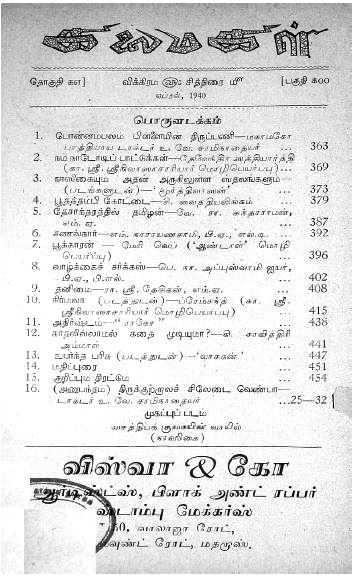 கலைமகள்
தொகுதி கஎ] விக்கிரம ௵ சித்திரை ௴ [பகுதி ௧00
ஏப்ரல், 1940
பொருளடக்கம்
1. பொன்னம்பலம் பிள்ளையின் திருப்பணி—மகாமகோ
பாத்தியாய டாக்டர் உ. வே. சாமிநாதையர் 363
2. நம் நாடோடிப் பாட்டுக்கள்—தேவேந்திர ஸத்தியார்த்தி
(கா. ஸ்ரீ. ஸ்ரீநிவாஸாசாரியார் மொழிபெயர்ப்பு) 369
3. காஸ்கையும் அதன் அருகிலுள்ள ஸ்தலங்களும்
(படங்களுடன்)—'மூர்த்திதாஸன்' 373
4. பூக்தத்தம்பி கோட்டை—சி. வைத்தியலிங்கம் 379
5. தேசாந்தரத்தில் தமிழன்—வே. ரா. சுந்தரராமன்,
எம். ஏ. 387
6. சணல்நார்—எம். நாராயணசாமி, பி.ஏ., எல்.டி. 392
7. பூக்காரன் — மேரி வெப் ('ஆண்டாள்' மொழி
பெயர்ப்பு) 396
8. வாழ்க்கைச் சர்க்கஸ்—பெ. நா. அப்புஸ்வாமி ஐயர்,
பி.ஏ., பி.எல். 402
9. தனிமை—ரா. ஸ்ரீ. தேசிகன், எம்.ஏ. 408
10. நிர்மலா (படத்துடன்)—ப்ரேம்சந்த் (கா. ஸ்ரீ.
ஸ்ரீநிவாஸாசாரியார் மொழிபெயர்ப்பு) 415
11. அதிர்ஷ்டம்—"ராகோ" 438
12. காதலில்லாமல் கதை முடியுமா?—கி. சாவித்திரி
அம்மாள் 441
13. உயர்ந்த பரிசு (படத்துடன்)—'வாசகன்' 447
14. மதிப்புரை 451
15. குறிப்பும் திரட்டும் 454
16. (அனுபந்தம்) திருக்குற்றாலச் சிலேடை வெண்பா—
டாக்டர் உ. வே. சாமிநாதையர் ...25—32
முகப்புப் படம்
வசந்தபுக் குகையின் வாயில்
(காஸிகை)
விஸ்வா & கோ
ஆர்டிஸ்ட்ஸ், பிளாக் அண்ட் ரப்பர்
ஸ்டாம்பு மேக்கர்ஸ்
30, வாலாஜா ரோட்,
மவுண்ட் ரோட், மதறாஸ்.